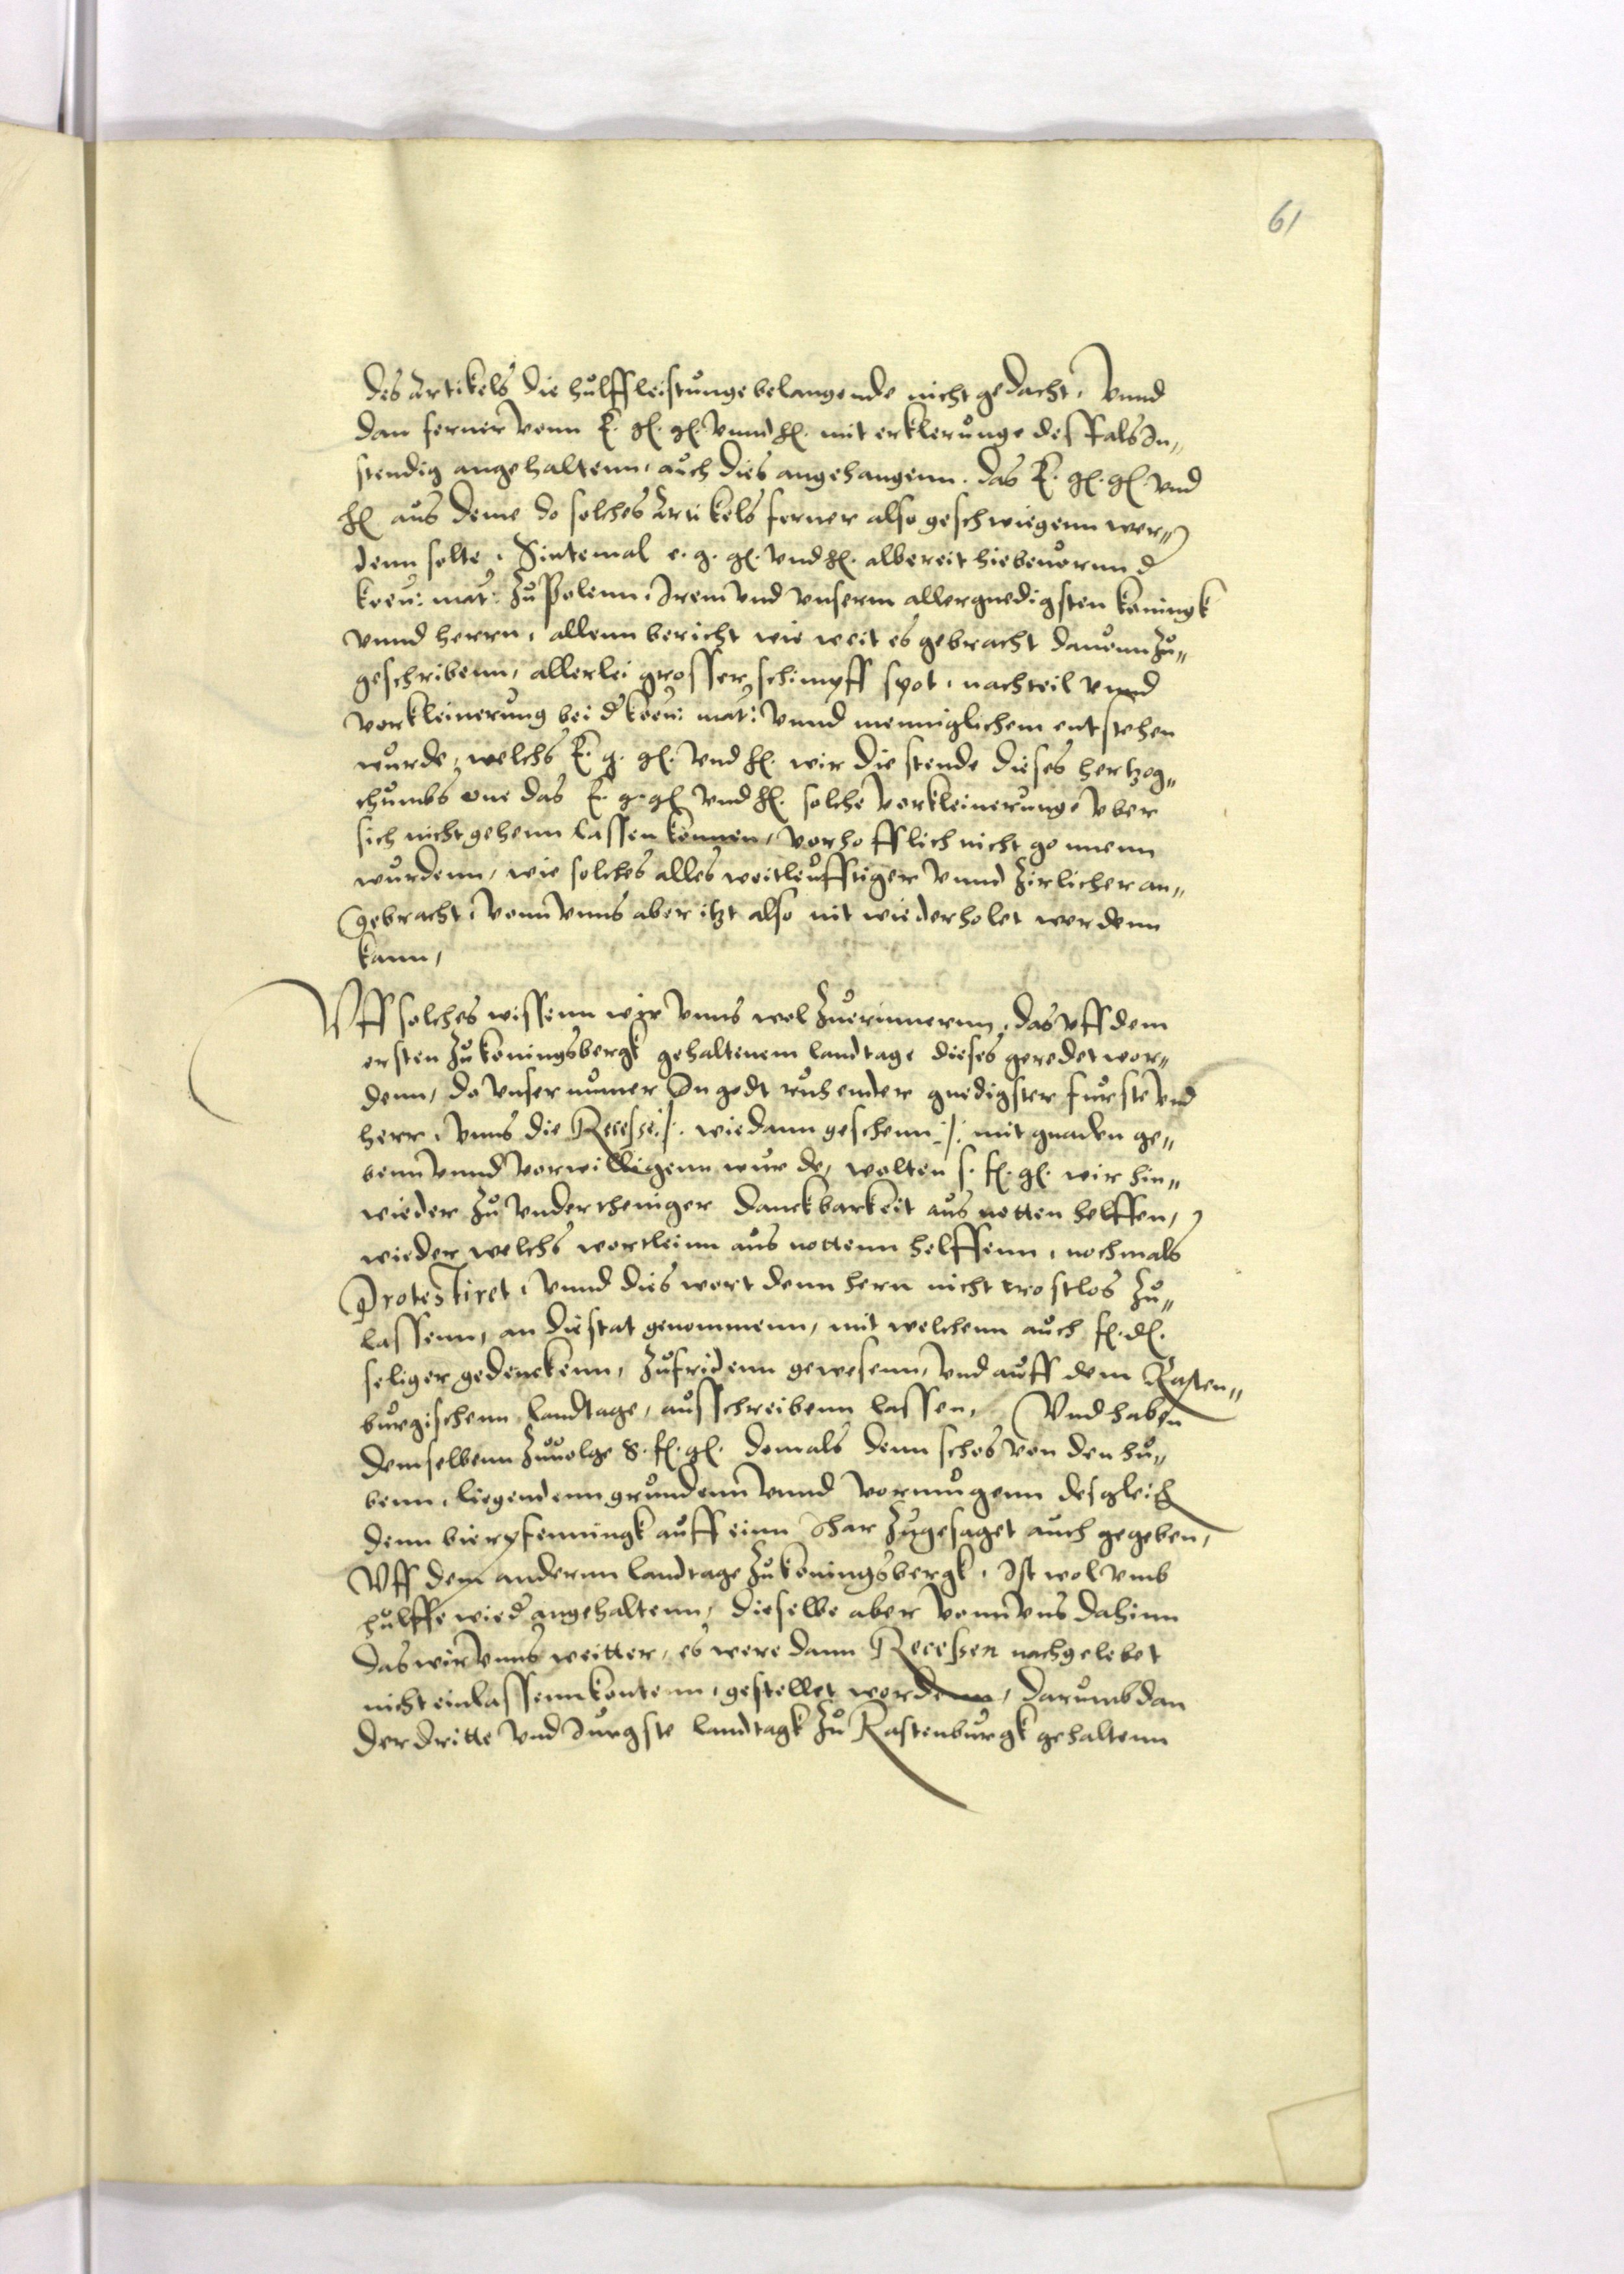 61
des Artikels die hulffleistunge belangende nicht gedacht, Vnnd
dan ferner vonn E. gl. gl. vnnd hl. mit erklerunge desfals In„
stendig angehaltenn, auch dies angehangenn. das E. gl. gl. vnd
hl. aus deme do solches Artikels ferner also geschwiegenn wer„
denn solte, Sintemal e. g. gl. vnd hl. albereit hiebeuornn d
koen: mat: zu Polenn, Irem vnd vnserm allergnedigsten koningk
vnnd herrn, allenn bericht wie weit es gebracht dauonn zu„
geschribenn, allerlei grosser schimpff spot, nachteil vnnd
vorkleinerung bei d koen: mat: vnnd menniglichem entstehen
wurde, welchs E. g. gl. vnd hl. wir die stende dieses hertzog„
thumbs one das E. g. gl vnd hl. solche vorkleinerunge vber
sich nicht gehenn lassen konnen, vorhofflich nicht gonnenn
wurdenn, wie solches alles weitleufftiger vnnd zirlicher an„
gebracht, vonn vnns aber itzt also nit wiederholet werdenn
kann,
Vff solches wissenn wir vnns wol zuerinnernn, das vff dem
ersten zu koningsbergk gehaltenem landtage dieses geredet wor„
denn, do vnser numer In godt ruhender gnedigster furste vnd
herr, vnns die Recesse :/: wie dann geschenn :/: mit gnaden ge„
benn vnnd vorwilligenn wurde, wolten s. fl. gl. wir hin„
wieder zu vndertheniger danckbarkeit aus notten helffen,
wieder welchs wortleinn aus nottenn helffenn, nochmals
Protestiret, vnnd dies wort denn hern nicht trostlos zu„
lassenn, an die stat genommenn, mit welchenn auch fl. dl.
seliger gedenckenn, zufridenn gewesenn, vnd auff dem Rasten„
burgischenn landtage, ausschreibenn lassen, Vnd haben
demselbenn zuuolge S. fl. gl. domals denn schos von den hu„
benn, liegendenn grundenn vnnd vormugenn desgleich
denn bierpfenningk auff einn Ihar zugesaget auch gegeben,
Vff dem andernn landtage zu koningsbergk, Ist wol vmb
hulffe wied angehaltenn, dieselbe aber vonn vns dahinn
das wir vnns weitter, es were dann Recessen nachgelebet
nicht einlassenn kontenn, gestellet wordenn, darumb dan
der dritte vnd Jungste landtagk zu Rastenburgk gehaltenn